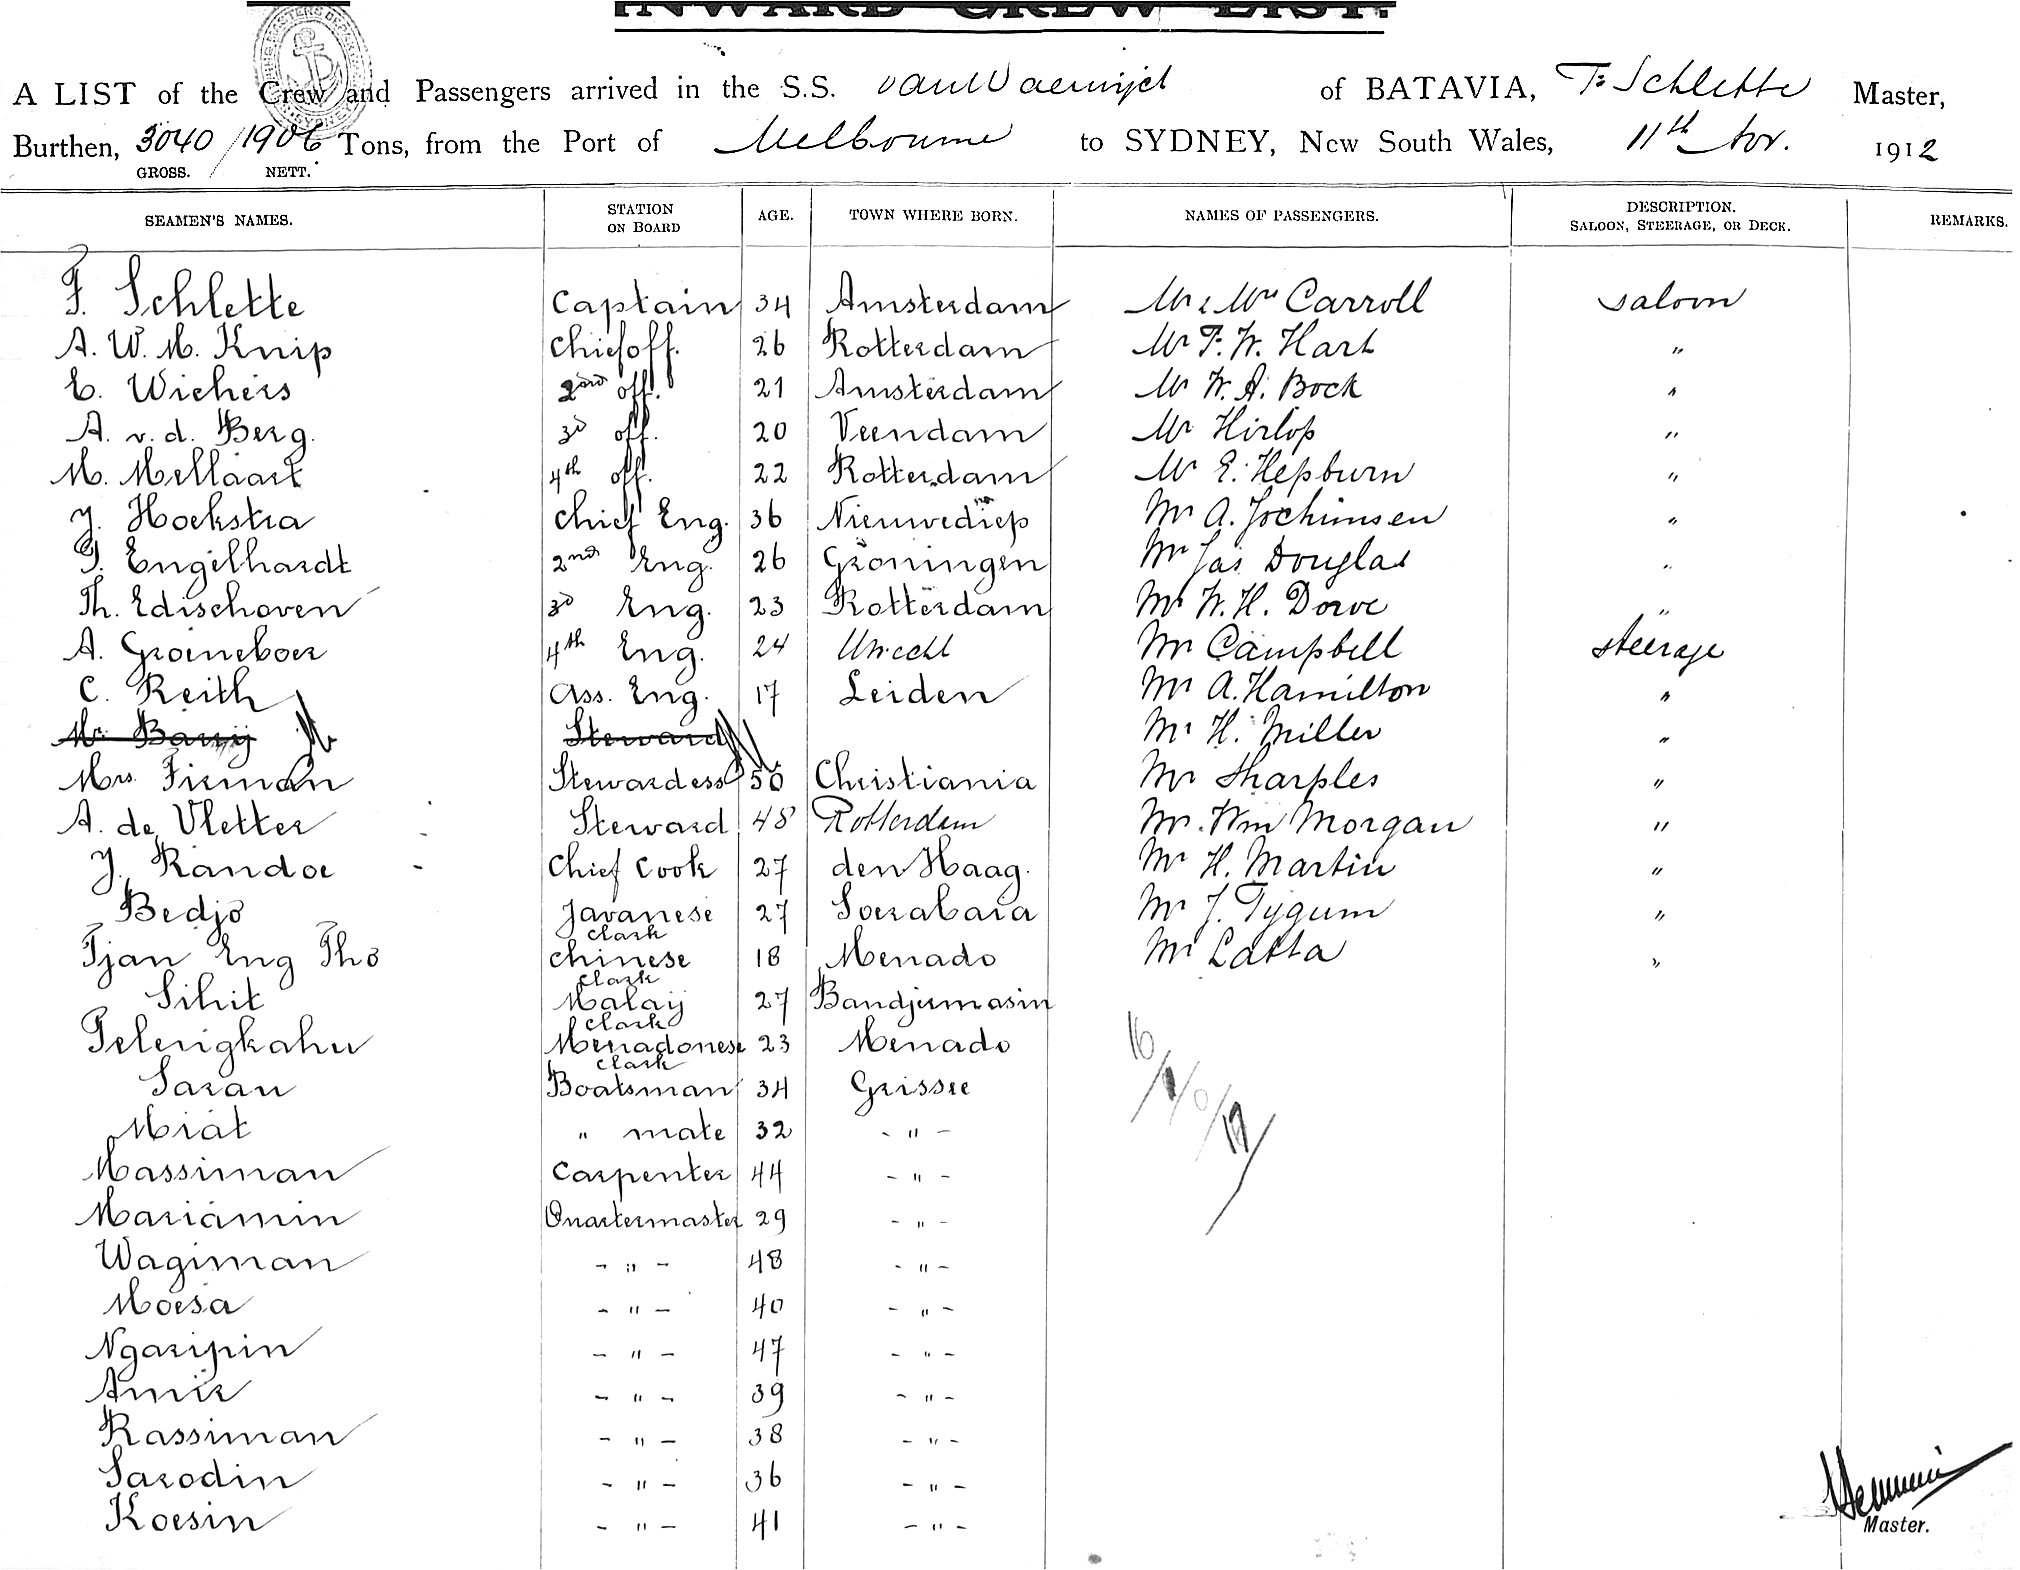 INWARD CREW LIST.
A LIST of the Crew and Passengers arrived in the S.S. van Waerwijck of BATAVIA, F. Schlette Master,
Burthen, 3040 / 1906 Tons, from the Port of Melbourne to SYDNEY, New South Wales, 11th 1912
GROSS. NETT.
SEAMEN'S NAMES. STATION ON BOARD AGE. TOWN WHERE BORN. NAMES OF PASSENGERS. DESCRIPTION. SALOON, STEERAGE, OR DECK. REMARKS.
F. Schlette Captain 34 Amsterdam Mr & Mrs Carroll saloon
A. W. M. Knip Chief off. 26 Rotterdam Mr F. W. Hart "
C. Wichers 2nd off. 21 Amsterdam Mr W. A. Bock "
A. v. d. Berg. 3d off. 20 Veendam Mr Hirlop "
M. Mellaart 4th off. 22 Rotterdam Mr E. Hepburn "
J. Hoekstra Chief Eng. 36 Nieuwediep Mr A. Jochimsen "
Engelhardt 2nd Eng. 26 Groningen Mr Jas Douglas "
Th. Edischoven 3d Eng. 23 Rotterdam Mr W. H. Dowe "
A. Groeneboer 4th Eng. 24 Utrecht Mr Campbell steerage
C. Reith Ass. Eng. 17 Leiden Mr A. Hamilton "
Steward Mr H. Miller "
Mrs Firman Stewardess 50 Christiania Mr Sharples "
A. de Vletter Steward 48 Rotterdam Mr. Wm Morgan "
J. Randoe Chief Cook 27 den Haag. Mr H. Martin "
Bedjo Javanese clark 27 Soerabaia Mr J. Tygum "
Tjan Eng Tho Chinese clark 18 Menado Mr Latta "
Sihit Malay clark 27 Bandjermasin
Pelengkahu Menadonese clark 23 Menado
Saran Boatsman 34 Grissee
Miat " mate 32 - " -
Massiman Carpenter 44 - " -
Mariamin Quartermaster 29 - " -
Wagiman - " - 48 - " -
Moesa - " - 40 - " -
Ngaripin - " - 47 - " -
Amir - " - 39 - " -
Rassiman - " - 38 - " -
Sarodin - " - 36 - " -
Koesin - " - 41 - " -
Master.